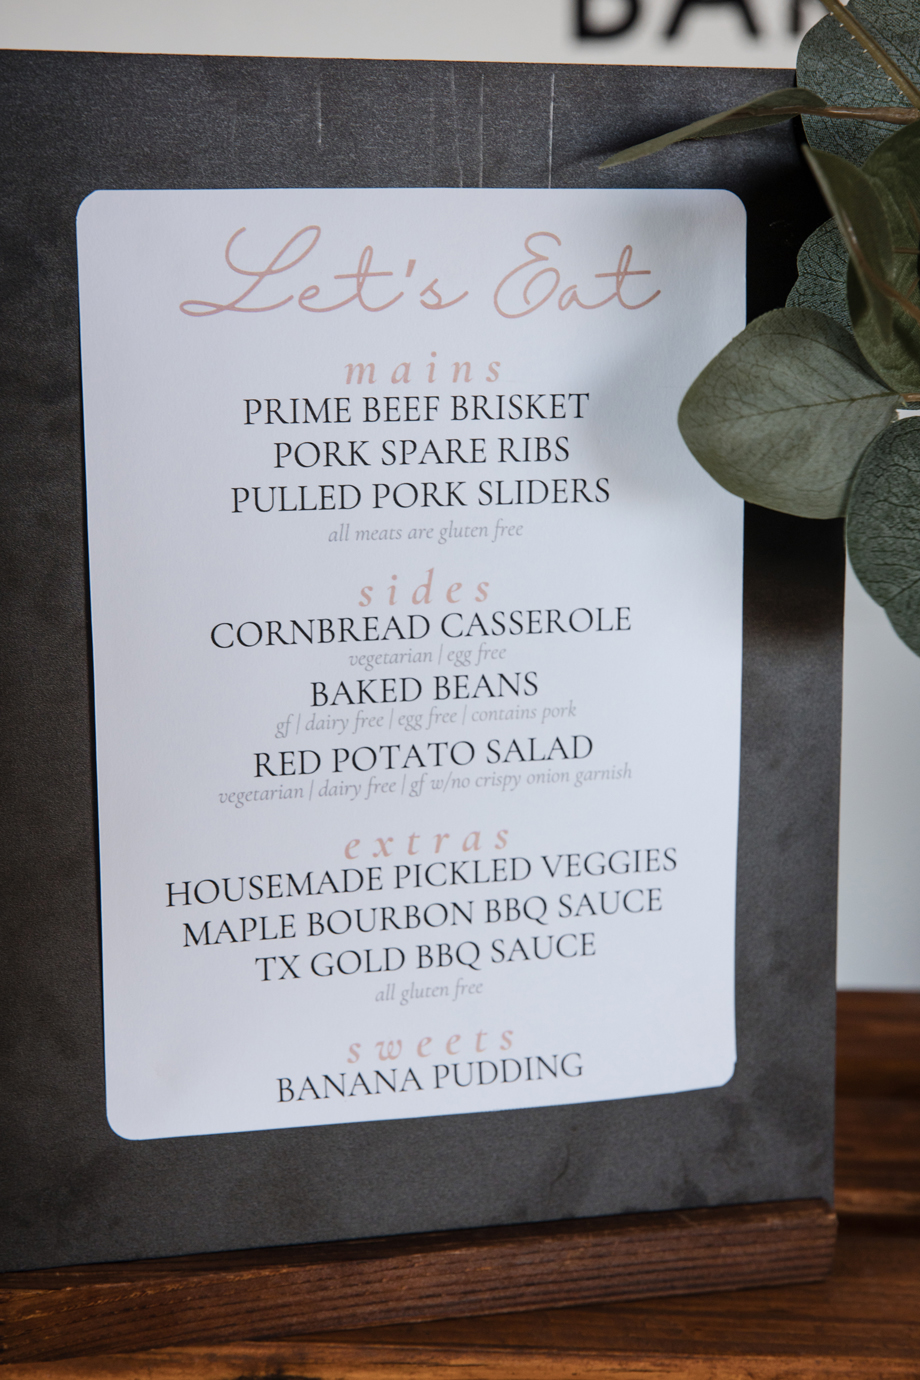 Let's Eat
mains
PRIME BEEF BRISKET
PORK SPARE RIBS
PULLED PORK SLIDERS
all meats are gluten free
sides
CORNBREAD CASSEROLE
vegetarian | egg free
BAKED BEANS
gf | dairy free | egg free | contains pork
RED POTATO SALAD
vegetarian | dairy free | gf w/no crispy onion garnish
extras
HOUSEMADE PICKLED VEGGIES
MAPLE BOURBON BBQ SAUCE
TX GOLD BBQ SAUCE
all gluten free
sweets
BANANA PUDDING